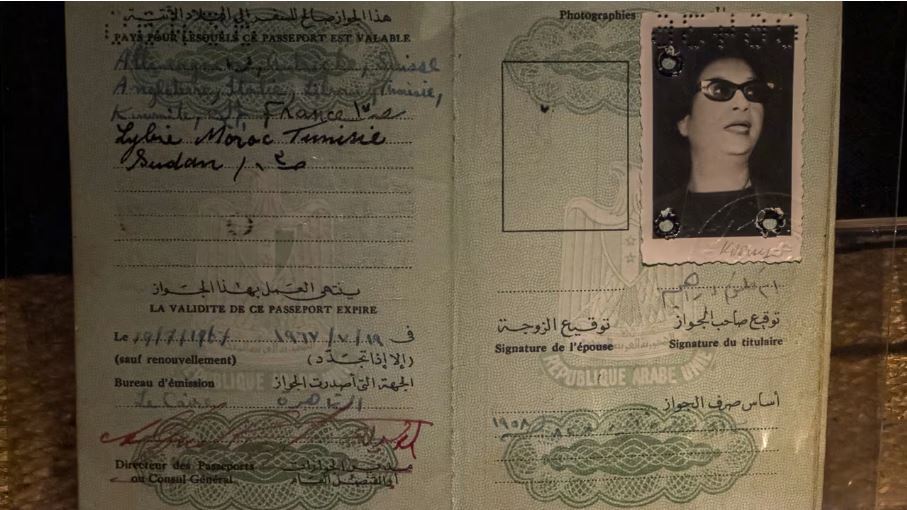 هذا الجواز صالح للسفر إلى البلاد الآتية
PAYS POUR LESQUELS CE PASSEPORT EST VALABLE
Allemagne Autriche, Suisse
Angleterre, Italie, Liban, Tunisie,
France
Lybie Maroc Tunisie
Sudan
ينتهى العمل بهذا الجواز
LA VALIDITE DE CE PASSEPORT EXPIRE
Le 19/7/196 ١٩٦٧/٧/١٩ فى
(sauf renouvellement) (إلا إذا تجدد)
Bureau d'émission الجهة التى أصدرت الجواز
Le Caire القاهرة
Directeur des Passeports مدير الجوازات
ou Consul Général أو القنصل العام
REPUBLIQUE ARABE UNIE
Photographies
توقيع الزوجة توقيع صاحب الجواز
Signature de l'épouse Signature du titulaire
REPUBLIQUE ARABE UNIE
أساس صرف الجواز
١٩٥٨